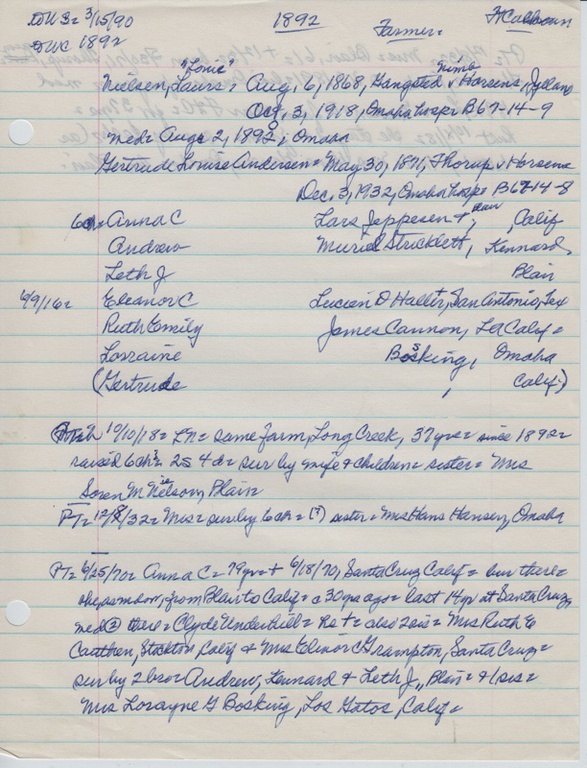 1892 Farmer= Ft Calhoun
DUC 1892 3/15/90
"Louie" Nimb
Nielsen, Laurs, Aug, 6, 1868, Hangsted v Horsens, Jylland
Oct, 3, 1918, Omaha hosp= B67-14-9
med= Aug= 2, 1892, Omaha
Gertrude Louise Andersen= May 30, 1871, Thorup v Horsens
Dec, 3, 1932, Omaha hosp= B67-14-8
6ch= Anna C Lars Jeppesen +, Calif
Andrew Muriel Stricklett, Kennard
Leth J Blair
6/9/16= Eleanor C Lucien D Haller, San Antonio, Tex
Ruth Emily James Cannon, LA Calif=
Lorraine Bosking, Omaha
(Gertrude , Calif=)
10/10/18= LN= same farm, Long Creek, 37yrs= since 1892=
raised 6ch= 2s 4d= sur by wife + children= sister= Mrs
Soren M Nielsen, Blair=
PT= 12/8/32= Mrs= sur by 6ch= (?) sister= Mrs Hans Hansen, Omaha
PT= 6/25/70= Anna C= 79yr= + 6/18/70, Santa Cruz Calif= bur there=
from Blair to Calif= a 30ya ago= last 14yr at Santa Cruz,
med ② there= Clyde Underhill= he += also 2sis= Mrs Ruth E
Cauthen, Stockton, Calif + Mrs Elinor C Grampton, Santa Cruz=
sur by 2 bro= Andrew, Kennard + Leth J,, Blair= + 1 sis=
Mrs Lorayne G Bosking, Los Gatos, Calif=